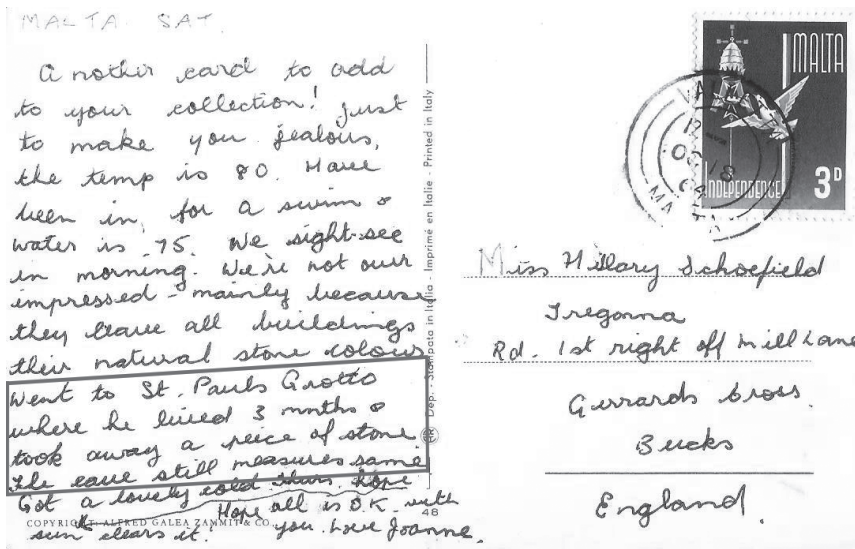 MALTA SAT.
Another card to add
to your collection! Just
to make you jealous,
the temp is 80. Have
been in for a swim &
water is 75. We sight-see
in morning. We're not our
impressed - mainly because
they leave all buildings
their natural stone colour
Went to St. Pauls Grotto
where he lived 3 mnths &
took away a peice of stone.
The cave still measures same
Got a lovely cold Thurs. Hope
sun clears it! Hope all is O.K. with
you. Love Joanne.
COPYRIGHT: ALFRED GALEA ZAMMIT & CO.
48
Dep. - Stampata in Italia - Imprimé en Italie - Printed in Italy
MALTA
INDEPENDENCE
3D
Miss Hilary Schofield
Tregonna
Rd. 1st right off Mill Lane
Gerrards Cross.
Bucks
England.